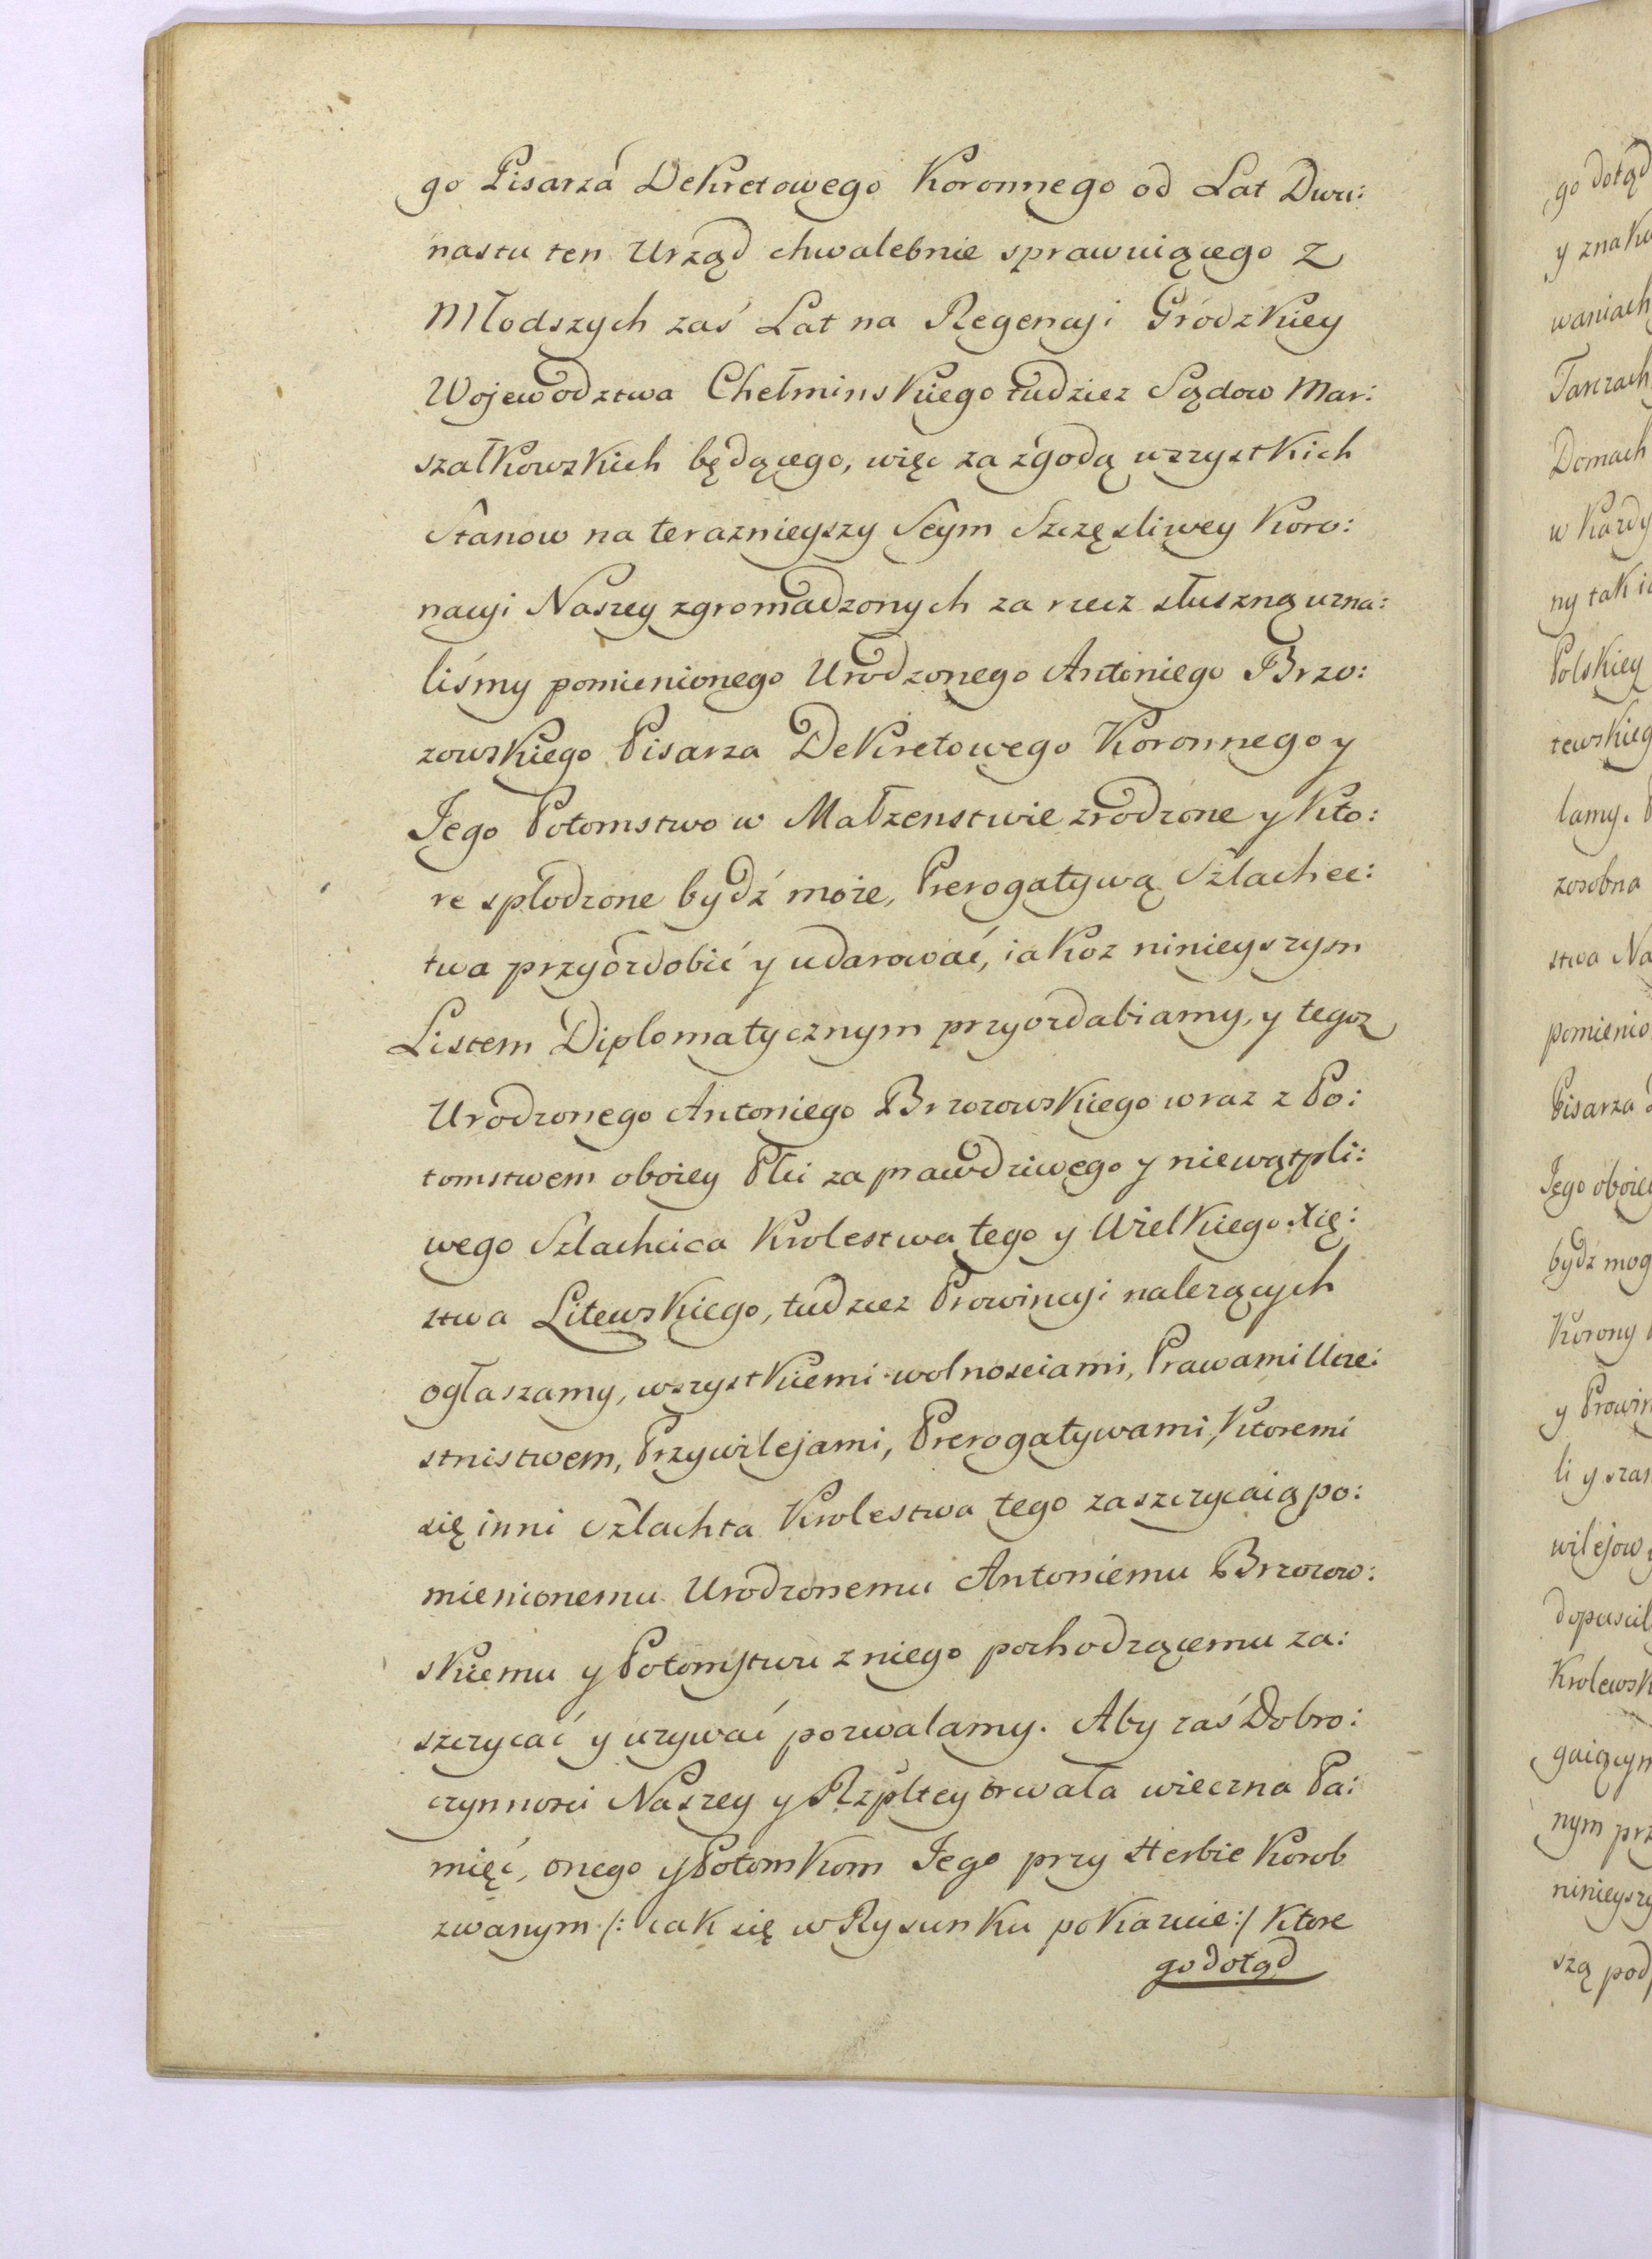 go Pisarza Dekretowego Koronnego od Lat Dwu:
nastu ten Urząd chwalebnie sprawuiącego z
Młodszych zaś Lat na Regencyi Grodzkiey
Wojewodztwa Chełminskiego tudziez Sądow Mar:
szałkowskich będącego, więc za zgodą wszystkich
Stanow na teraznieyszy Seym Szczęsliwey Koro:
nacyi Naszey zgromadzonych za rzecz słuszną uzna:
liśmy pomienionego Urodzonego Antoniego Brzo:
zowskiego Pisarza Dekretowego Koronnego y
Jego Potomstwo w Małzenstwie zrodzone y kto:
re spłodzone bydź może, Prerogatywą Szlachec:
twa przyozdobić y udarować, iakoz ninieyszym
Listem Diplomatycznym przyozdabiamy, y tegoz
Urodzonego Antoniego Brzozowskiego wraz z Po:
tomstwem oboiey Płci za prawdziwego y niewątpli:
wego Szlachcica Krolestwa tego y Wielkiego Xię:
stwa Litewskiego, tudziez Prowincyi nalezących
ogłaszamy, wszystkiemi wolnosciami, Prawami Ucze:
stnistwem, Przywilejami, Prerogatywami, ktoremi
się inni Szlachta Krolestwa tego zaszczycaią po:
mienionemu Urodzonemu Antoniemu Brzozow:
skiemu y Potomstwu z niego pochodzącemu za:
szczycać y uzywać pozwalamy. Aby zaś Dobro:
czynnosci Naszey y Rzpltey trwała wieczna Pa:
mięć, onego y Potomkom Jego przy Herbie Korob
zwanym /: iak się w Rysunku pokazuie :/ ktore
go dotąd
go dotąd
y znak
waniach
Tarczach
Domach
w kazdy
ny tak
Polskiey
tewskieg
lamy.
zosobna
stwa Na
pomienio
Pisarza
Jego oboie
bydź mog
Korony
y Prowin
li y sza
wilejow
dopuscil
Krolewsk
gaiącym
nym prz
ninieysz
szą pod